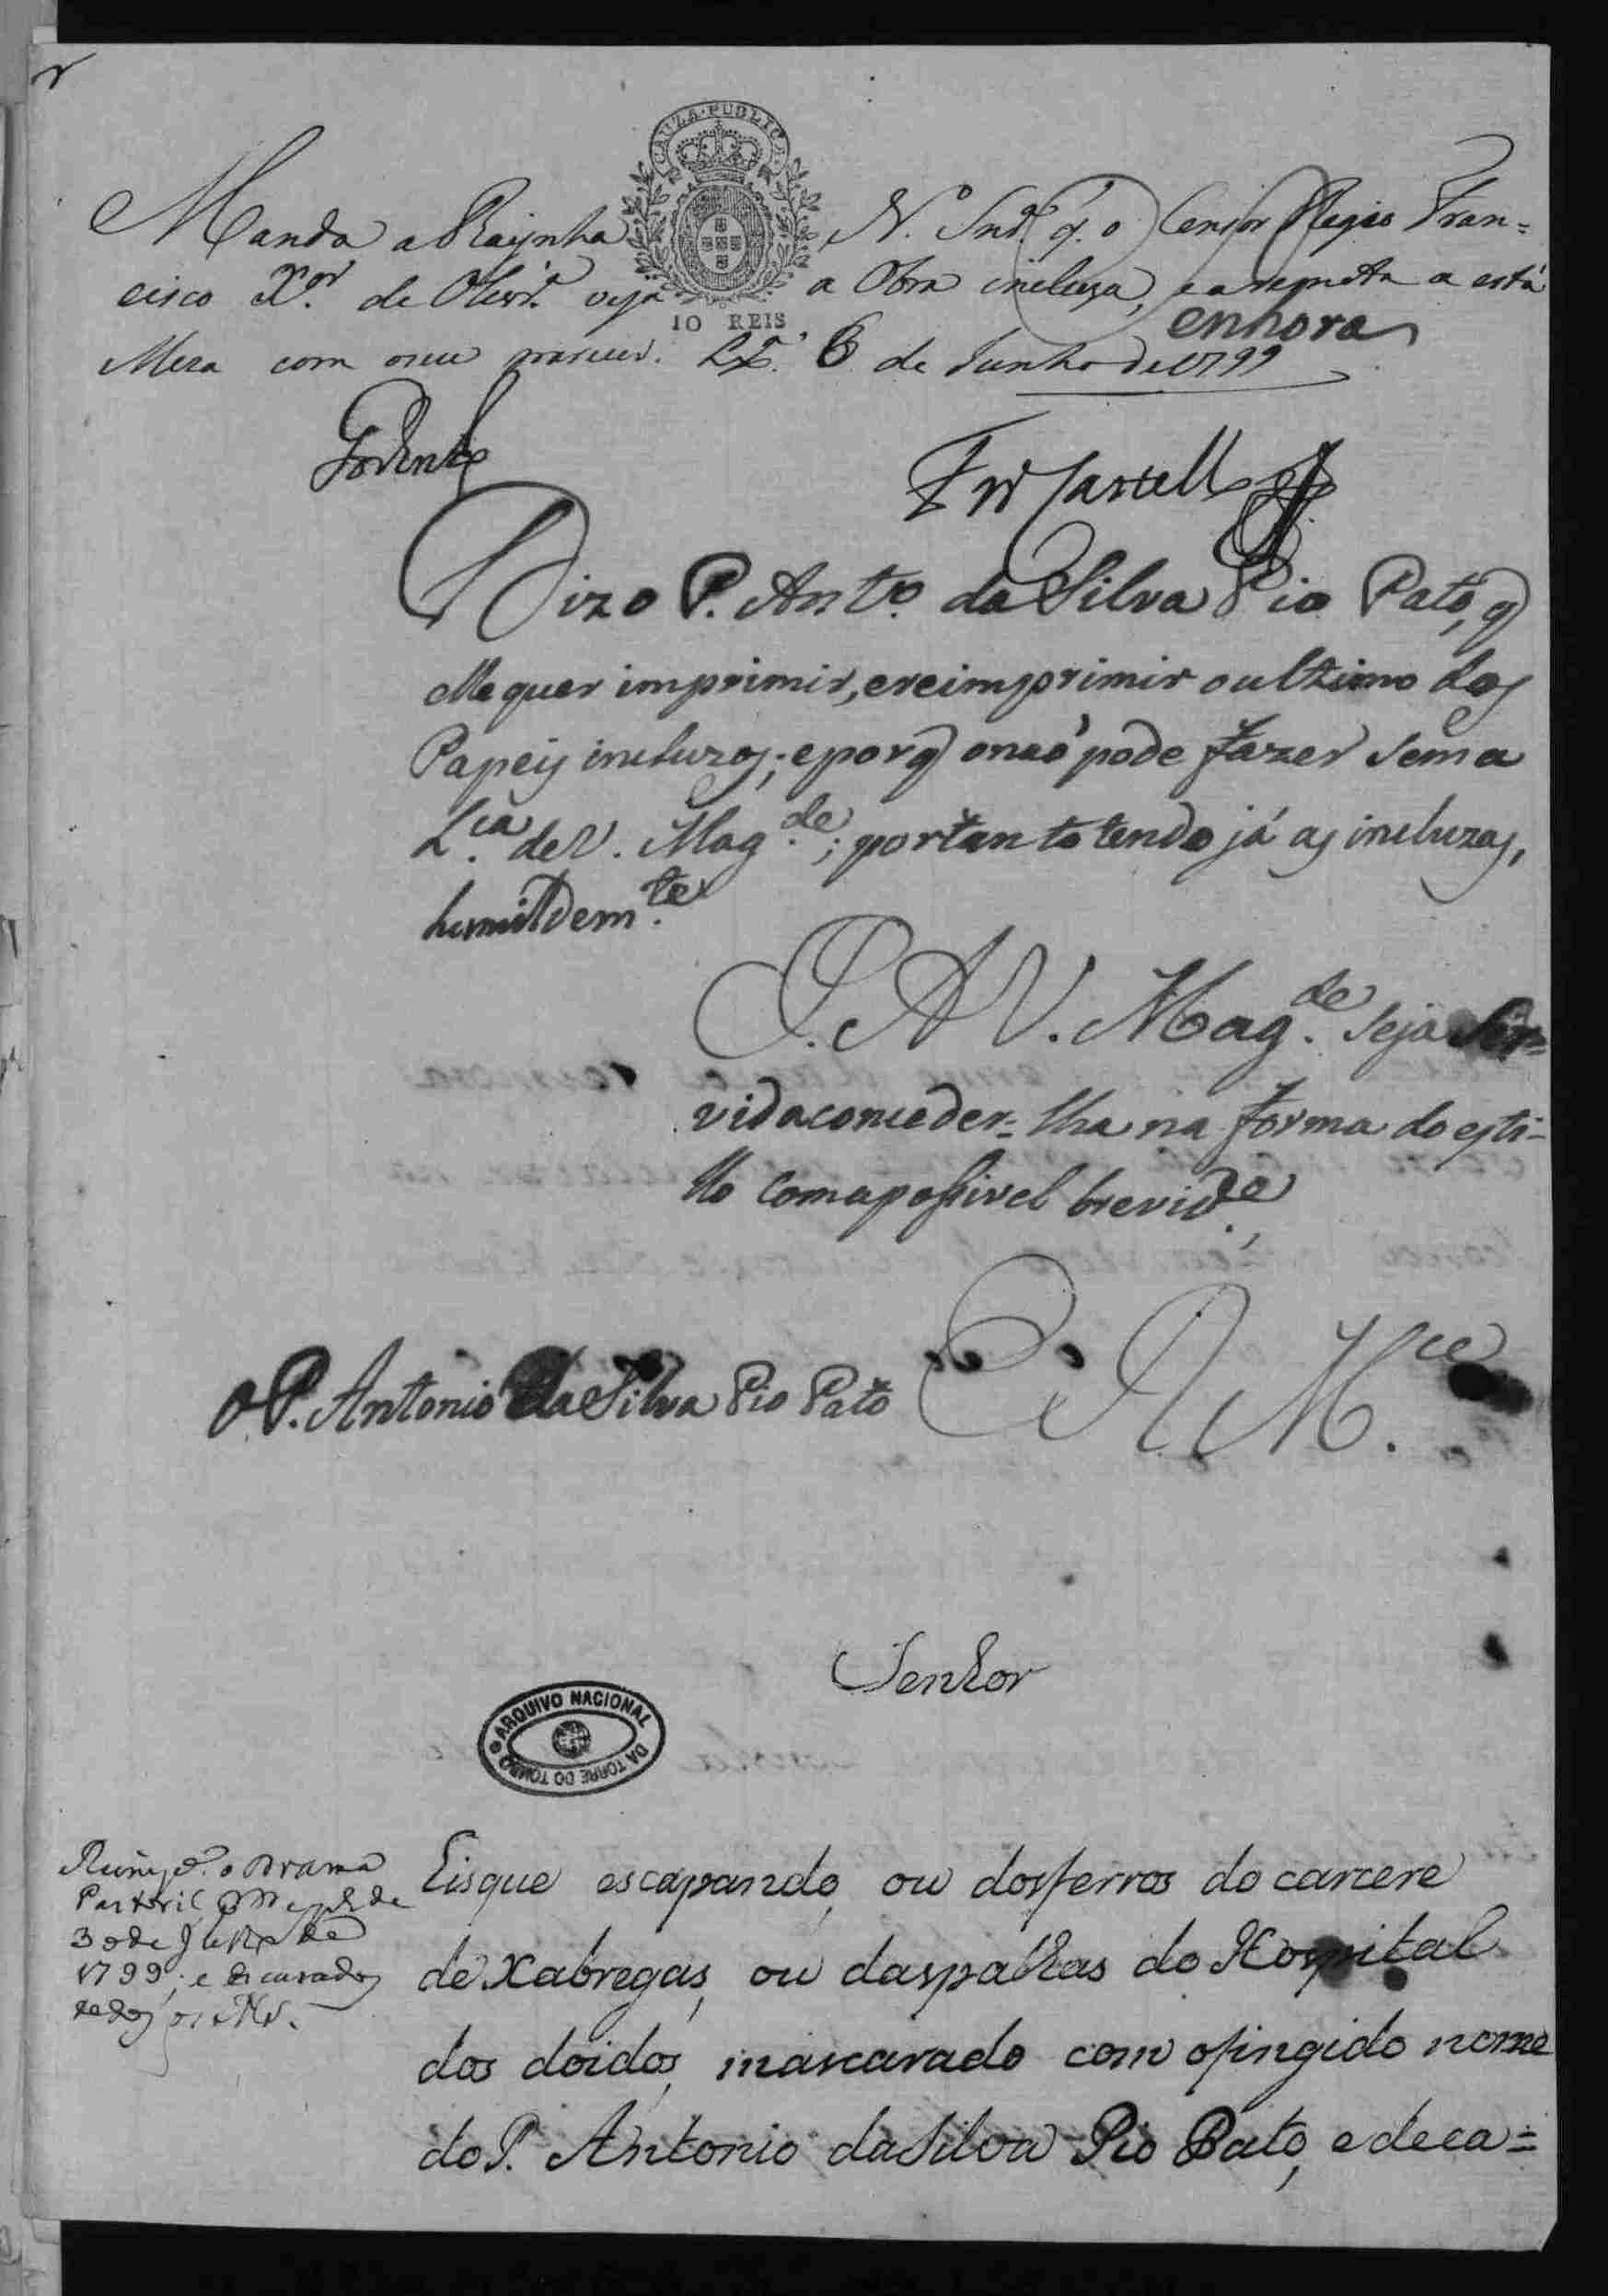 CAUZA PUBLICA
Manda a Raynha N. Snr.ª q. o Censor Regio Fran=
cisco X.er de Olivr.ª veja a Obra incluza, e a remeta a está
10 REIS
enhora
Meza com o seu parecer. Lx.ª 6 de Junho de 1799
Dizo P. Anto. da Silva Pio Pato, q
elle quer imprimir, e reimprimir o ultimo dos
Papeis incluzos; e porq o naõ pode fazer sem a
L.ca de V. Mag.de; portanto tendo já as incluzas,
humildem.te
P. A V. Mag.de seja Ser=
vida conceder=lha na forma do esti-
llo com a possivel brevid.e,
E R M.ce
O P. Antonio da Silva Pio Pato
Senhor
ARQUIVO NACIONAL
DA TORRE DO TOMBO
o Drama
Pastoril
30 de de
1799; e
Eisque escapando, ou dos ferros do carcere
de Xabregas, ou das palhas do Hospital
dos doidos, mascarado com o fingido nome
do P. Antonio da Silva Pio Pato, e de ca=